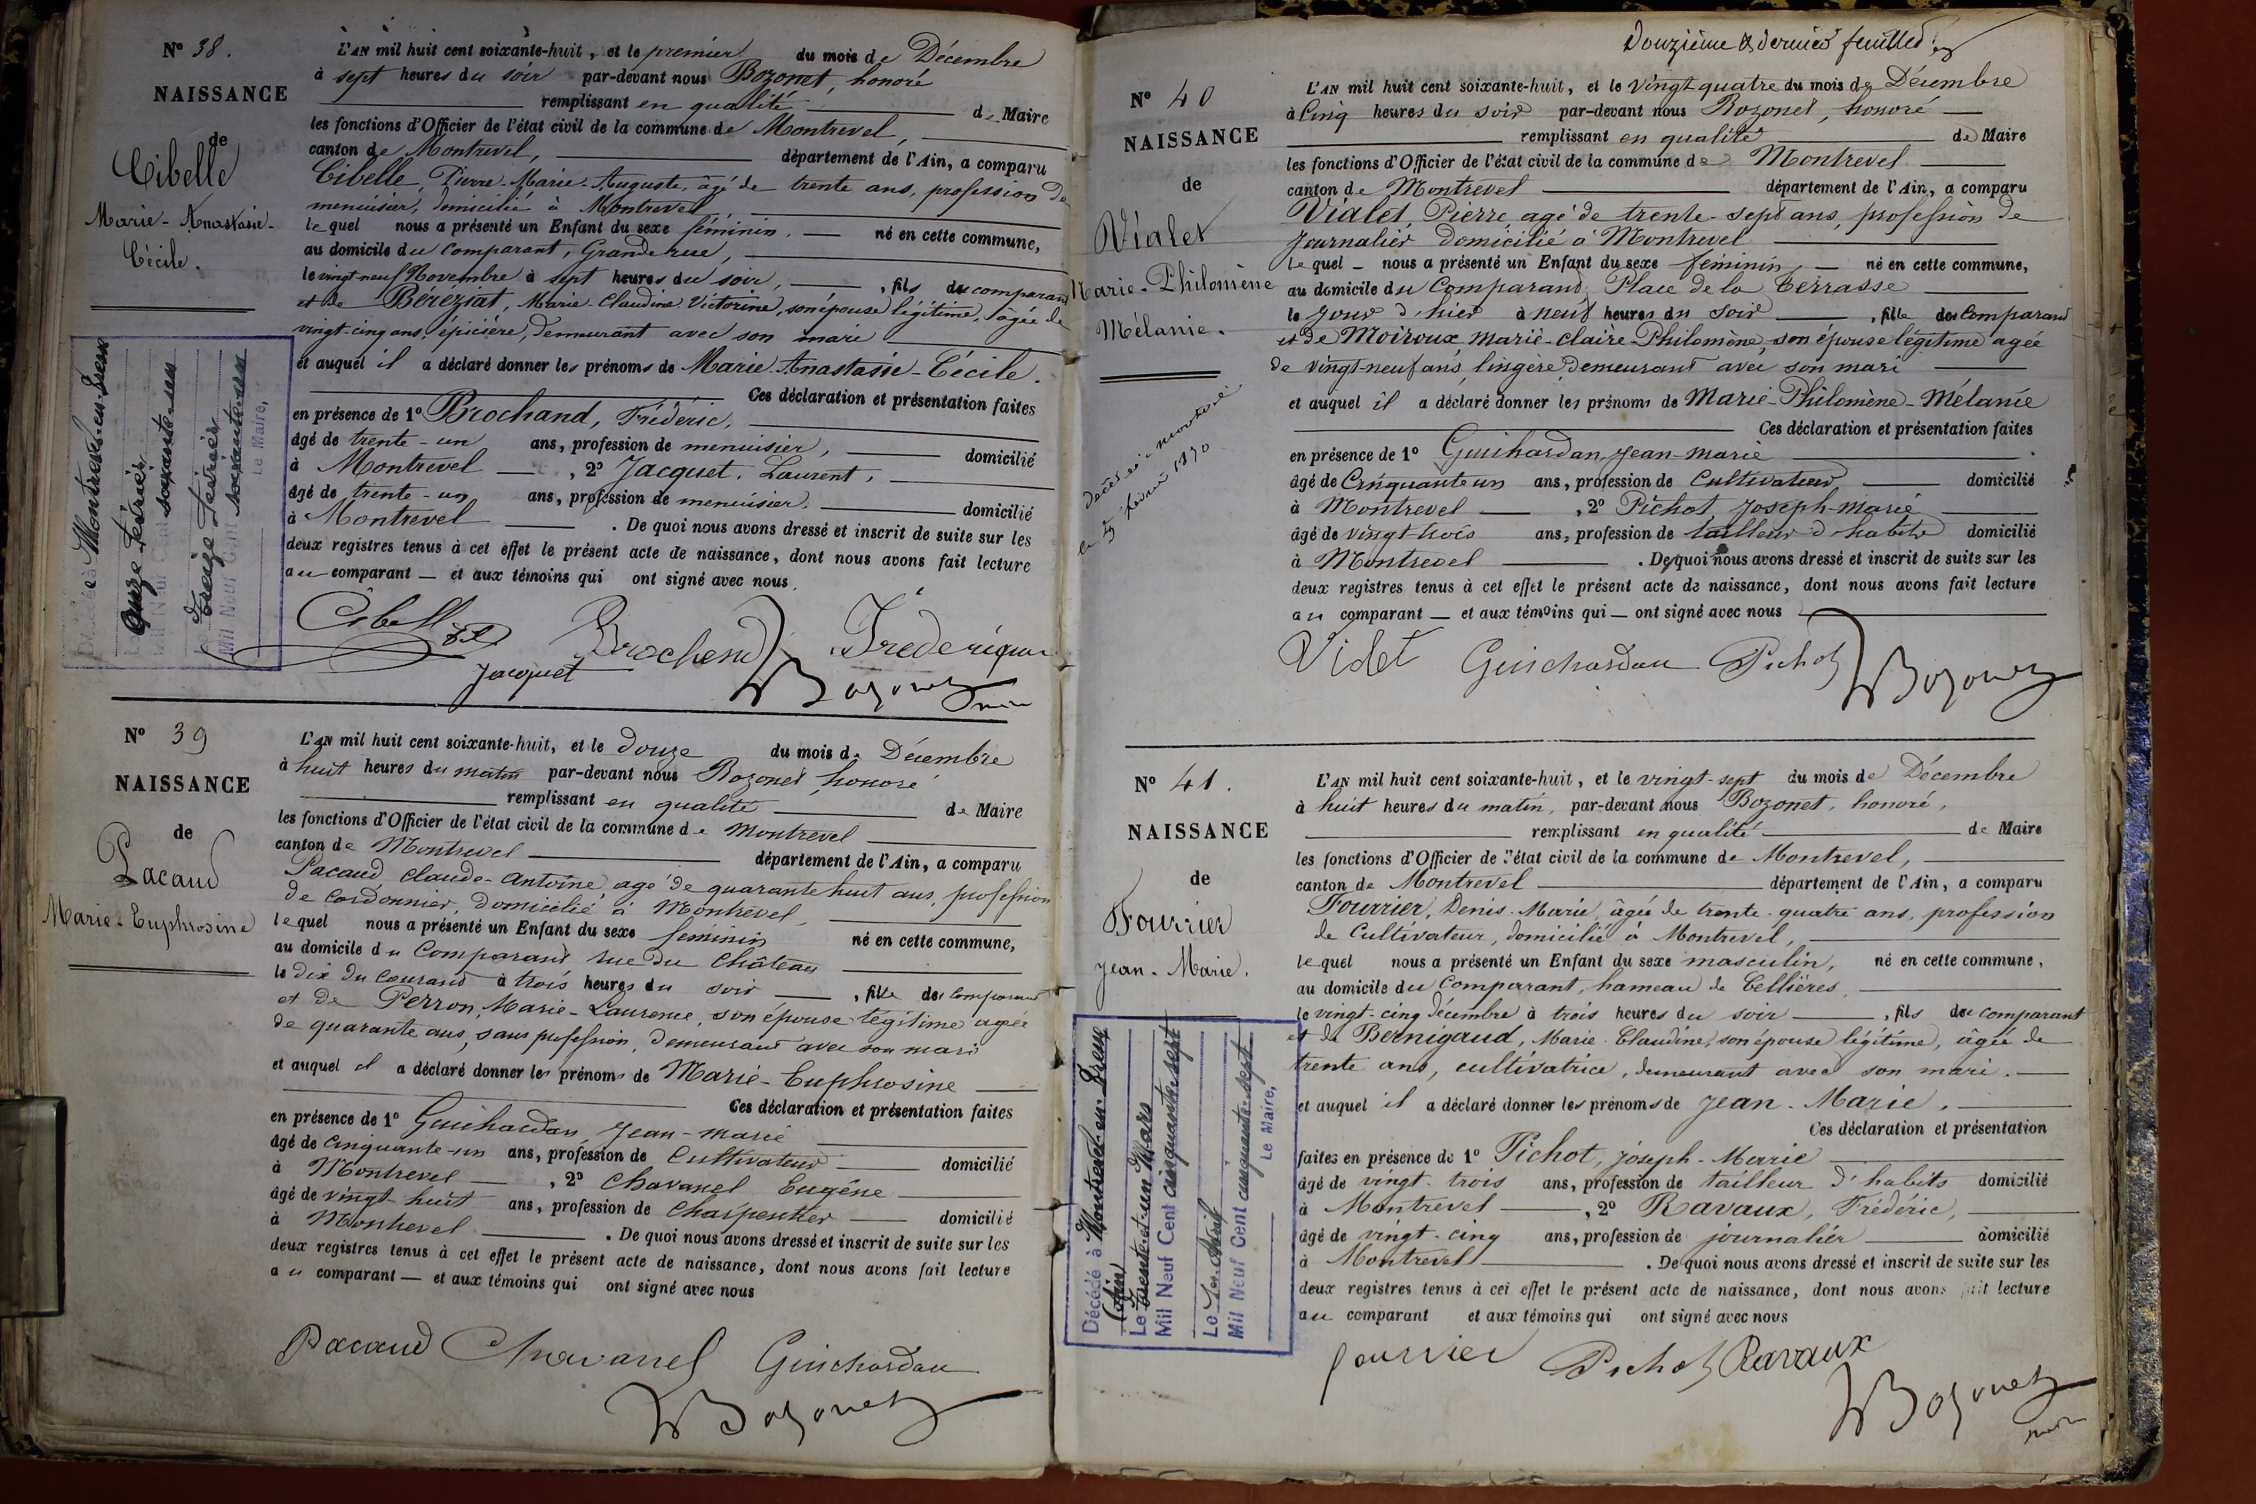 N° 38.
NAISSANCE
de
Cibelle
Marie-Anastasie-
Cécile.
L'AN mil huit cent soixante-huit, et le premier du mois de Décembre
à sept heures du soir par-devant nous Bozonet, honoré
remplissant en qualité de Maire
les fonctions d'Officier de l'état civil de la commune de Montrevel,
canton de Montrevel, département de l'Ain, a comparu
Cibelle, Pierre-Marie-Auguste, âgé de trente ans, profession de
menuisier, domicilié à Montrevel
lequel nous a présenté un Enfant du sexe féminin, né en cette commune,
au domicile du comparant, Grande rue,
le vingt-neuf Novembre à sept heures du soir, fils du comparant
et de Béréziat, Marie-Claudine Victorine, son épouse légitime, âgée de
vingt-cinq ans, épicière, demeurant avec son mari
et auquel il a déclaré donner les prénoms de Marie-Anastasie-Cécile.
Ces déclaration et présentation faites
en présence de 1° Brochand, Frédéric,
âgé de trente-un ans, profession de menuisier, domicilié
à Montrevel, 2° Jacquet, Laurent,
âgé de trente-un ans, profession de menuisier, domicilié
à Montrevel. De quoi nous avons dressé et inscrit de suite sur les
deux registres tenus à cet effet le présent acte de naissance, dont nous avons fait lecture
au comparant — et aux témoins qui ont signé avec nous.
Montrevel-en-Bresse
onze février
soixante-un
treize février
Mil Neuf Cent soixante-un
Le Maire,
Cibelle
Brochend Frederique
Jacquet
Bozonet
N° 39
NAISSANCE
de
Pacaud
Marie-Euphrosine
L'AN mil huit cent soixante-huit, et le douze du mois de Décembre
à huit heures du matin par-devant nous Bozonet, honoré
remplissant en qualité de Maire
les fonctions d'Officier de l'état civil de la commune de Montrevel
canton de Montrevel département de l'Ain, a comparu
Pacaud Claude-Antoine, agé de quarante huit ans, profession
de cordonnier, domicilié à Montrevel,
lequel nous a présenté un Enfant du sexe féminin né en cette commune,
au domicile du Comparant rue du Château
le dix du courant à trois heures du soir, fille du comparant
et de Perron, Marie-Laurence, son épouse légitime agée
de quarante ans, sans profession, demeurant avec son mari
et auquel il a déclaré donner les prénoms de Marie-Euphrosine
Ces déclaration et présentation faites
en présence de 1° Guichardan Jean-marie
âgé de cinquante-un ans, profession de Cultivateur domicilié
à Montrevel, 2° Chavanel Eugène
âgé de vingt huit ans, profession de Charpentier domicilié
à Montrevel. De quoi nous avons dressé et inscrit de suite sur les
deux registres tenus à cet effet le présent acte de naissance, dont nous avons fait lecture
au comparant — et aux témoins qui ont signé avec nous
Pacaud Chavanel Guichardan
Bozonet
Douzième & dernier feuillet
N° 40
NAISSANCE
de
Vialet
Marie-Philomène
Mélanie.
L'AN mil huit cent soixante-huit, et le vingt quatre du mois de Décembre
à Cinq heures du soir par-devant nous Bozonet, honoré
remplissant en qualité de Maire
les fonctions d'Officier de l'état civil de la commune de Montrevel
canton de Montrevel département de l'Ain, a comparu
Vialet Pierre agé de trente-sept ans, profession de
Journalier domicilié à Montrevel
lequel nous a présenté un Enfant du sexe féminin, né en cette commune,
au domicile du Comparant, Place de la Terrasse
le jour d'hier à neuf heures du soir, fille du Comparant
et de Moiroux, Marie-claire-Philomène, son épouse légitime agée
de vingt-neuf ans, lingère, demeurant avec son mari
et auquel il a déclaré donner les prénoms de Marie-Philomène-Mélanie
Ces déclaration et présentation faites
en présence de 1° Guichardan, Jean-marie
âgé de Cinquante un ans, profession de Cultivateur domicilié
à Montrevel, 2° Pichot, Joseph-Marie
âgé de vingt trois ans, profession de tailleur d'habits domicilié
à Montrevel. De quoi nous avons dressé et inscrit de suite sur les
deux registres tenus à cet effet le présent acte de naissance, dont nous avons fait lecture
au comparant — et aux témoins qui — ont signé avec nous
Vialet Guichardan Pichot
Bozonet
N° 41.
NAISSANCE
de
Fourrier
Jean-Marie.
L'AN mil huit cent soixante-huit, et le vingt-sept du mois de Décembre
à huit heures du matin, par-devant nous Bozonet, honoré,
remplissant en qualité de Maire
les fonctions d'Officier de l'état civil de la commune de Montrevel,
canton de Montrevel département de l'Ain, a comparu
Fourrier, Denis-Marie, âgée de trente-quatre ans, profession
de Cultivateur, domicilié à Montrevel,
lequel nous a présenté un Enfant du sexe masculin, né en cette commune,
au domicile du Comparant, hameau de Cellières,
le vingt-cinq décembre à trois heures du soir, fils du comparant
et de Bernigaud, Marie-Claudine, son épouse légitime, âgée de
trente ans, cultivatrice, demeurant avec son mari.
et auquel il a déclaré donner les prénoms de Jean-Marie.
Ces déclaration et présentation
faites en présence de 1° Pichot, Joseph-Marie
âgé de vingt-trois ans, profession de tailleur d'habits domicilié
à Montrevel, 2° Ravaux, Frédéric,
âgé de vingt-cinq ans, profession de journalier domicilié
à Montrevel. De quoi nous avons dressé et inscrit de suite sur les
deux registres tenus à cet effet le présent acte de naissance, dont nous avons fait lecture
au comparant et aux témoins qui ont signé avec nous
Décédé à Montrevel-en-Bresse
(Ain)
Le Trente et un Mars
Mil Neuf Cent cinquante-sept
Le 1er Avril
Mil Neuf Cent cinquante-sept
Le Maire,
fourrier Pichot Ravaux
Bozonet